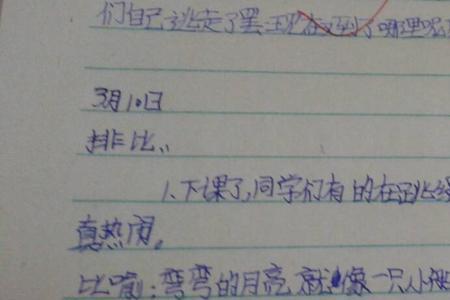 们自己逃走了罢现在到了哪里呢
3月10日
排比：
1.下课了,同学们有的在跳绳
真热闹。
比喻：弯弯的月亮就像一只小